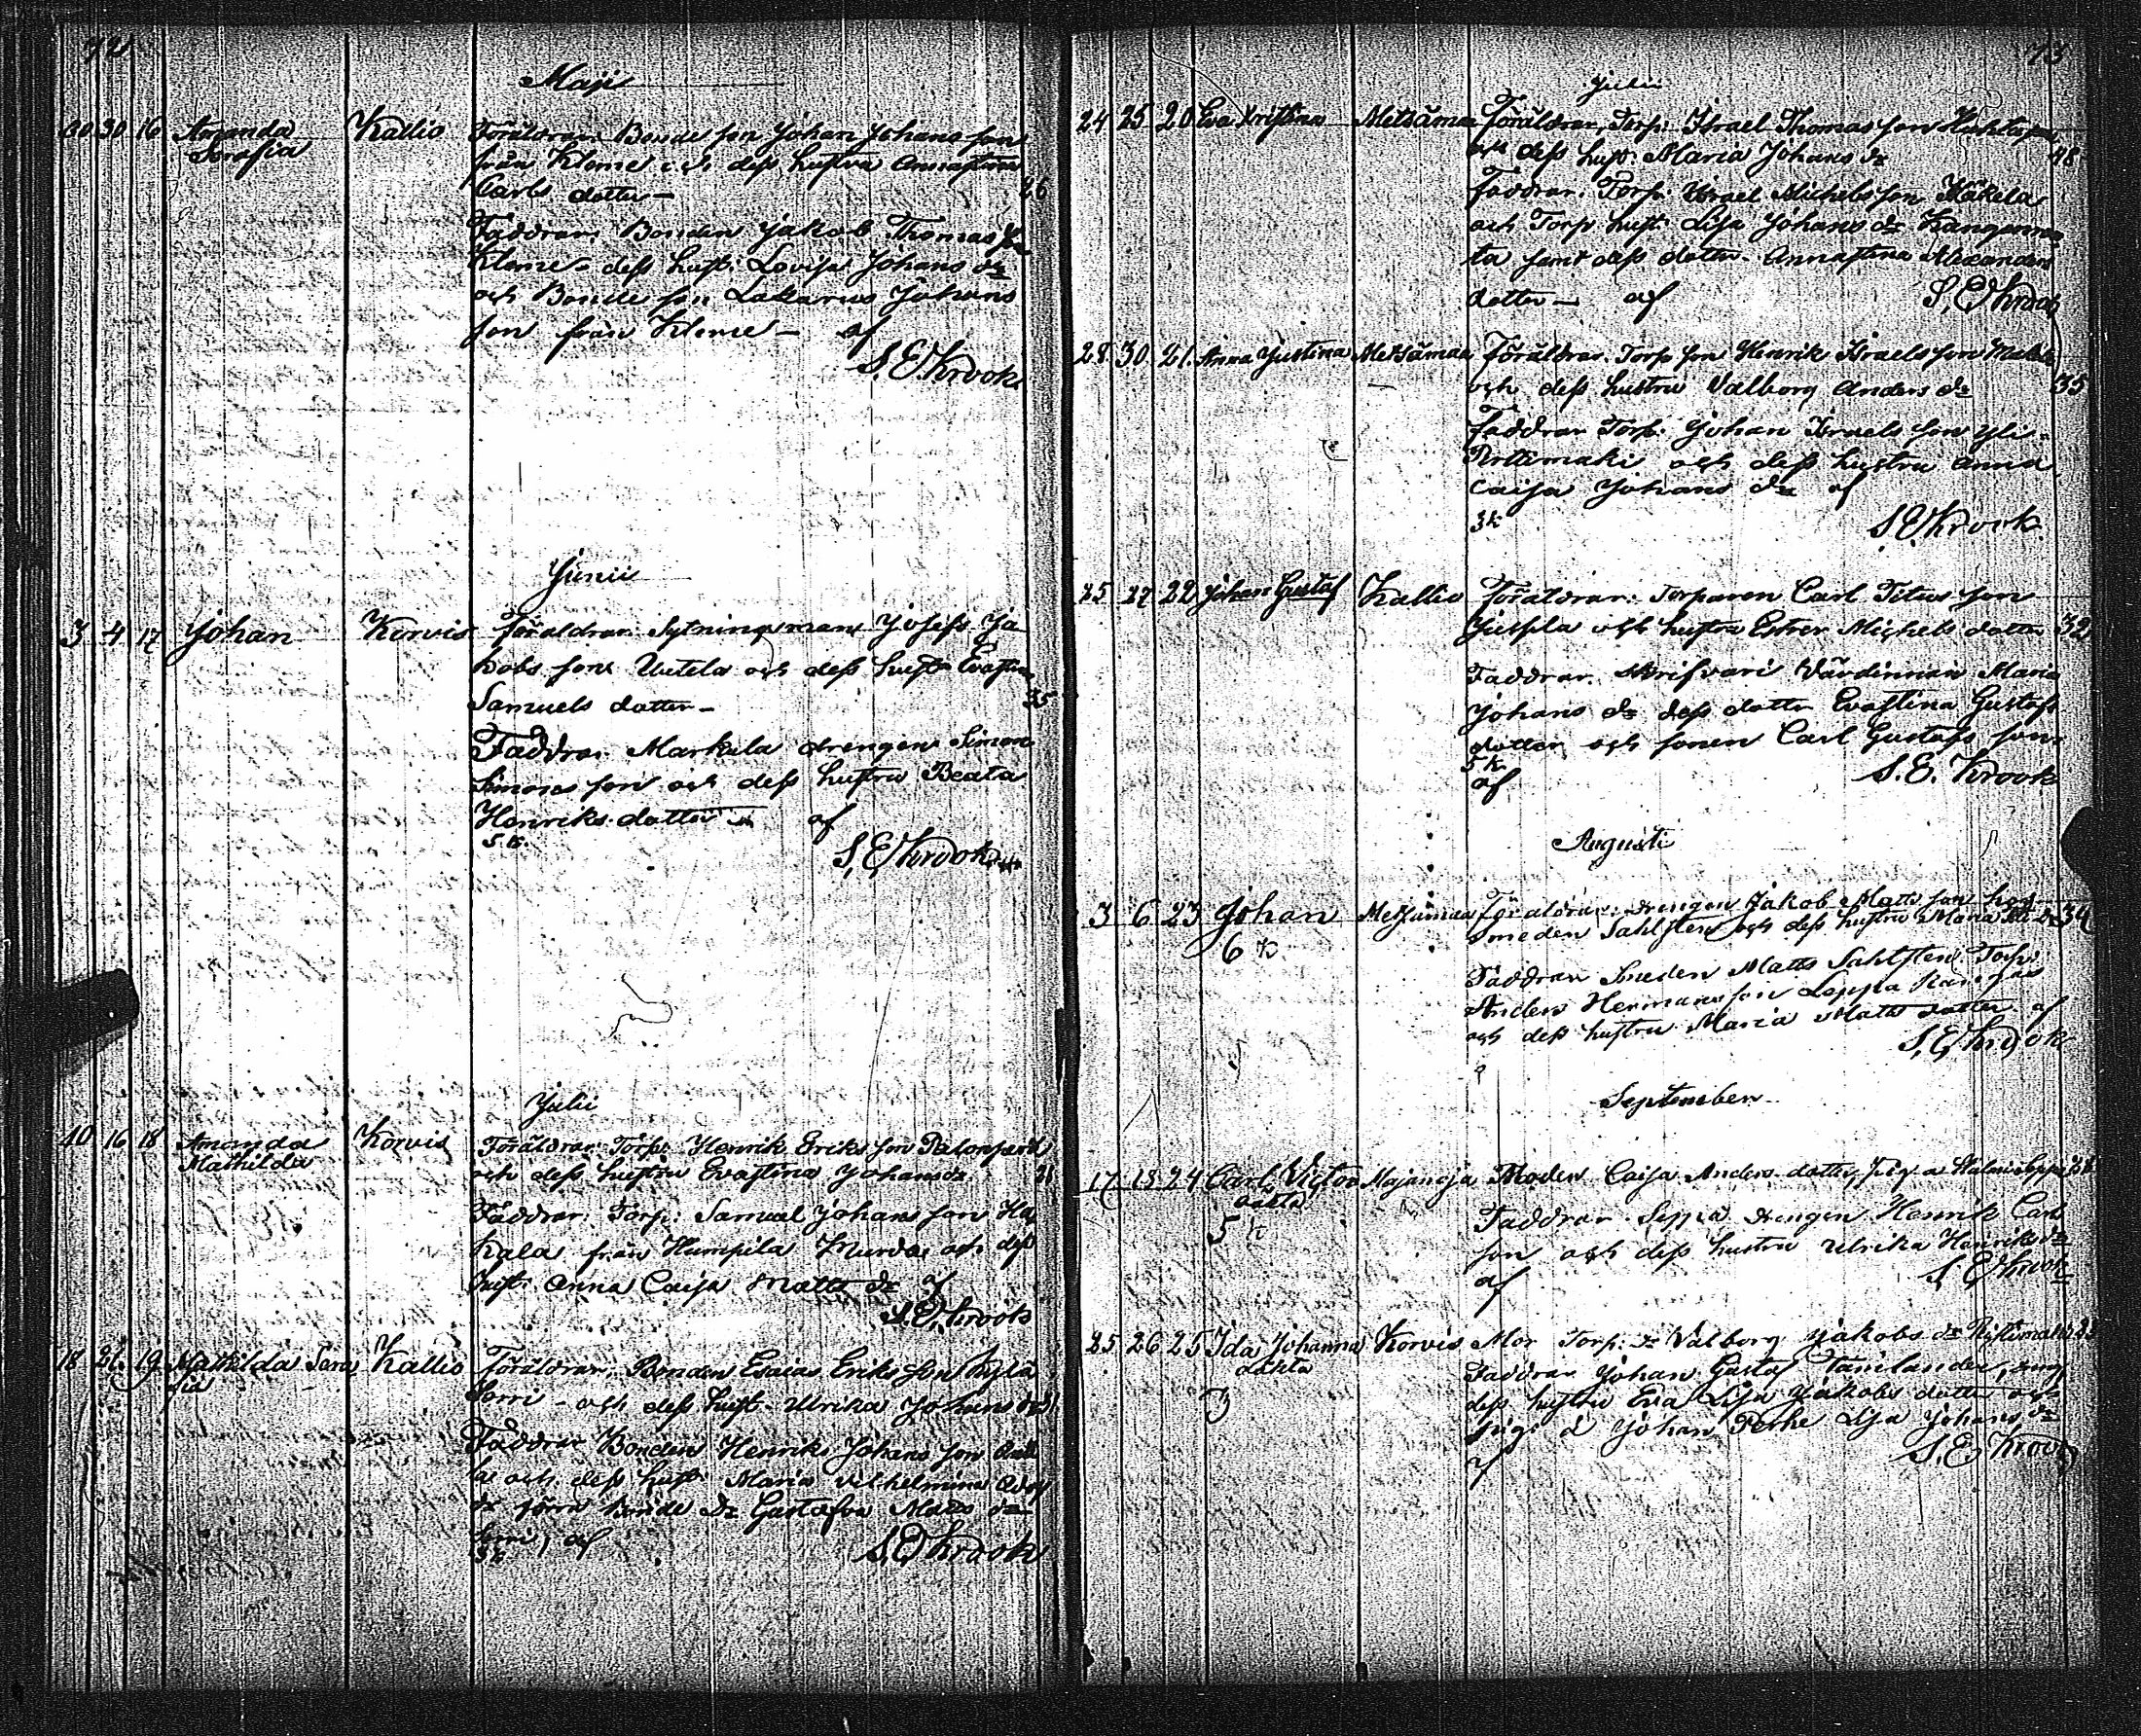 72
Maji
30 30 16 Amanda Kallio Föräldrar: Bonde son Johan Johans son
Serafia från Kleme och dess hustru Annastina
Carls dotter — 26
Faddrar: Bonden Jakob Thomas son
Kleme — dess hust: Lovisa Johans dr
och Bonde son Zakarius Johans
son från Kleme — af
S. E. Krook
Junii
3 4 17 Johan Korvis Föräldrar: Sytningsman Josef Ja
kobs son Uutela och dess hust: Evastina
Samuels dotter — 35
Faddrar Markula drengen Simon
Simons son och dess hustru Beata
Henriks dotter — af
5 k. S. E. Krook
Julii
10 16 18 Amanda Korvis Föräldrar: Torp: Henrik Eriks son
Mathilda och dess hustru Evastina Johans dr
Faddrar: Torp: Samuel Johans son
kala från Humpila och dess
hust: Anna Caisa Matts dr af
S. E. Krook
18 21 19 Mathilda Sera Kallio Föräldrar: Bonden Esaias Eriks son Kylä
fia Sorri — och dess hust — Ulrika Johans dr
Faddrar Bonden Henrik Johans son
la och dess hust: Maria Vilhelmina
dr Bonde dr Gustafva Matts dr
Sorri, af
3 k S. E. Krook
73
Julii
24 25 20 Eva Kristina Metsämaa Föräldrar, Torp: Israel Thomas son
och dess hust: Maria Johans dr 48
Faddrar: Torp: Israel Michels son Mäkelä
och Torp hust: Lisa Johans dr Kangasnie
ta samt dess dotter Annastina Alexanders
dotter — af S. E. Krook
28 30 21 Anna Justina Metsämaa Föräldrar Torp son Henrik Israels son
och dess hustru Valborg Anders dr 35
Faddrar Torp: Johan Israels son Yli-
Anttimaki och dess hustru Anna
Caisa Johans dr af
3 k S. E. Krook
25 27 22 Johan Gustaf Kallio Föräldrar: Torparen Carl Titus son
och hustru Ester Michels dotter 32
Faddrar Skrifvari Värdinnan Maria
Johans dr dess dotter Evastina Gustafs
dotter och sonen Carl Gustafs son
5 k.
af S. E. Krook
Augusti
3 6 23 Johan Metsämaa Föräldrar: drengen Jakob Matts son hos
6 k smeden Sahlsten och dess hustru Maria 34
Faddrar Smeden Matts Sahlsten, Torp:
Anders Hermans son Leppa Kangas
och dess hustru Maria Matts dotter af
S. E. Krook
September
17 18 24 Carl Victor Majanoja Moder Caisa Anders dotter, Pig a
oäkta
5 k Faddrar Seppä drengen Henrik Carls
son och dess hustru Ulrika Henriks dr
af S. E. Krook
25 26 25 Ida Johanna Korvis Mor Torp: dr Valborg Jakobs dr
oäkta Faddrar Johan Gustaf
3 dess hustru Eva Lisa Jakobs dotter och
pig: å Johan Perhe Lisa Johans dr
af S. E. Krook